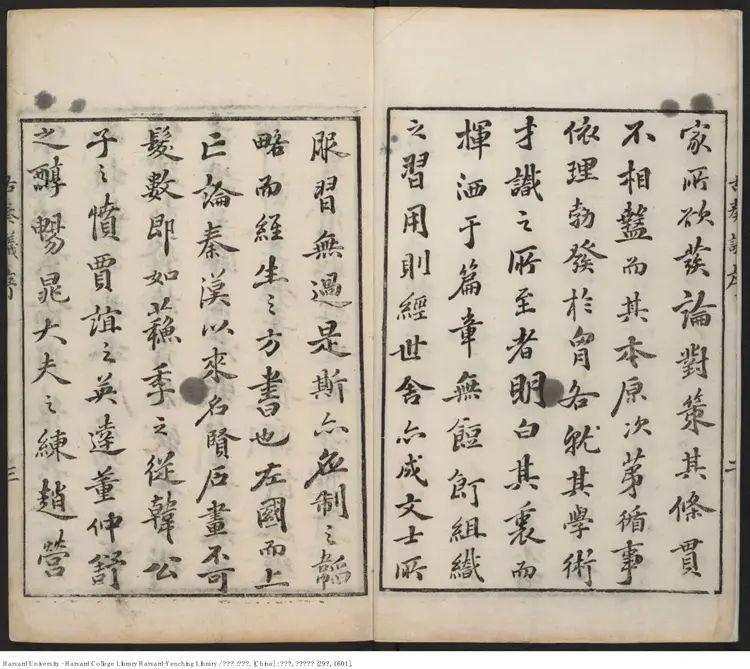 家所欲發論對策其條貫
不相盭而其本原次苐循事
依理勃發於胷各就其學術
才識之所至者明白其裏而
揮洒于篇章無餖飣組織
之習用則經世舍亦成文士所
服習無過是斯亦应制之韜
略而經生之方書也左國而上
亡論秦漢以來名賢石畫不可
髮數即如蘓季之從韓公
子之憤賈誼之英達董仲舒
之醇暢晁大夫之練趙營
古奏議序
二
古奏議序
三
Harvard University - Harvard College Library Harvard-Yenching Library / ??? : ???. [China] : ???, ????? [29?, 1601].